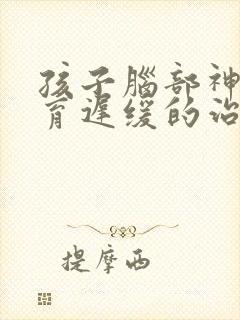 孩子腦部神
育遲缓的治
提摩西